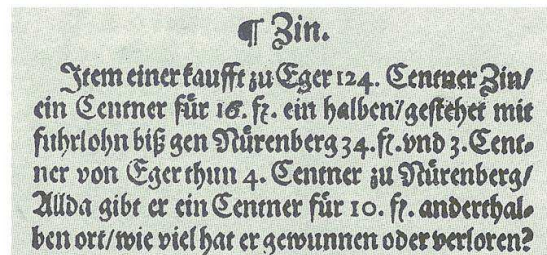 ¶ Zin.
Item einer kaufft zu Eger 124. Centner Zin/
ein Centner für 16. fl. ein halben/gestehet mit
fuhrlohn biß gen Nürenberg 34. fl. vnd 3. Cent⸗
ner von Eger thun 4. Centner zu Nürenberg/
Allda gibt er ein Centner für 10. fl. anderthal⸗
ben ort/wie viel hat er gewunnen oder verloren?